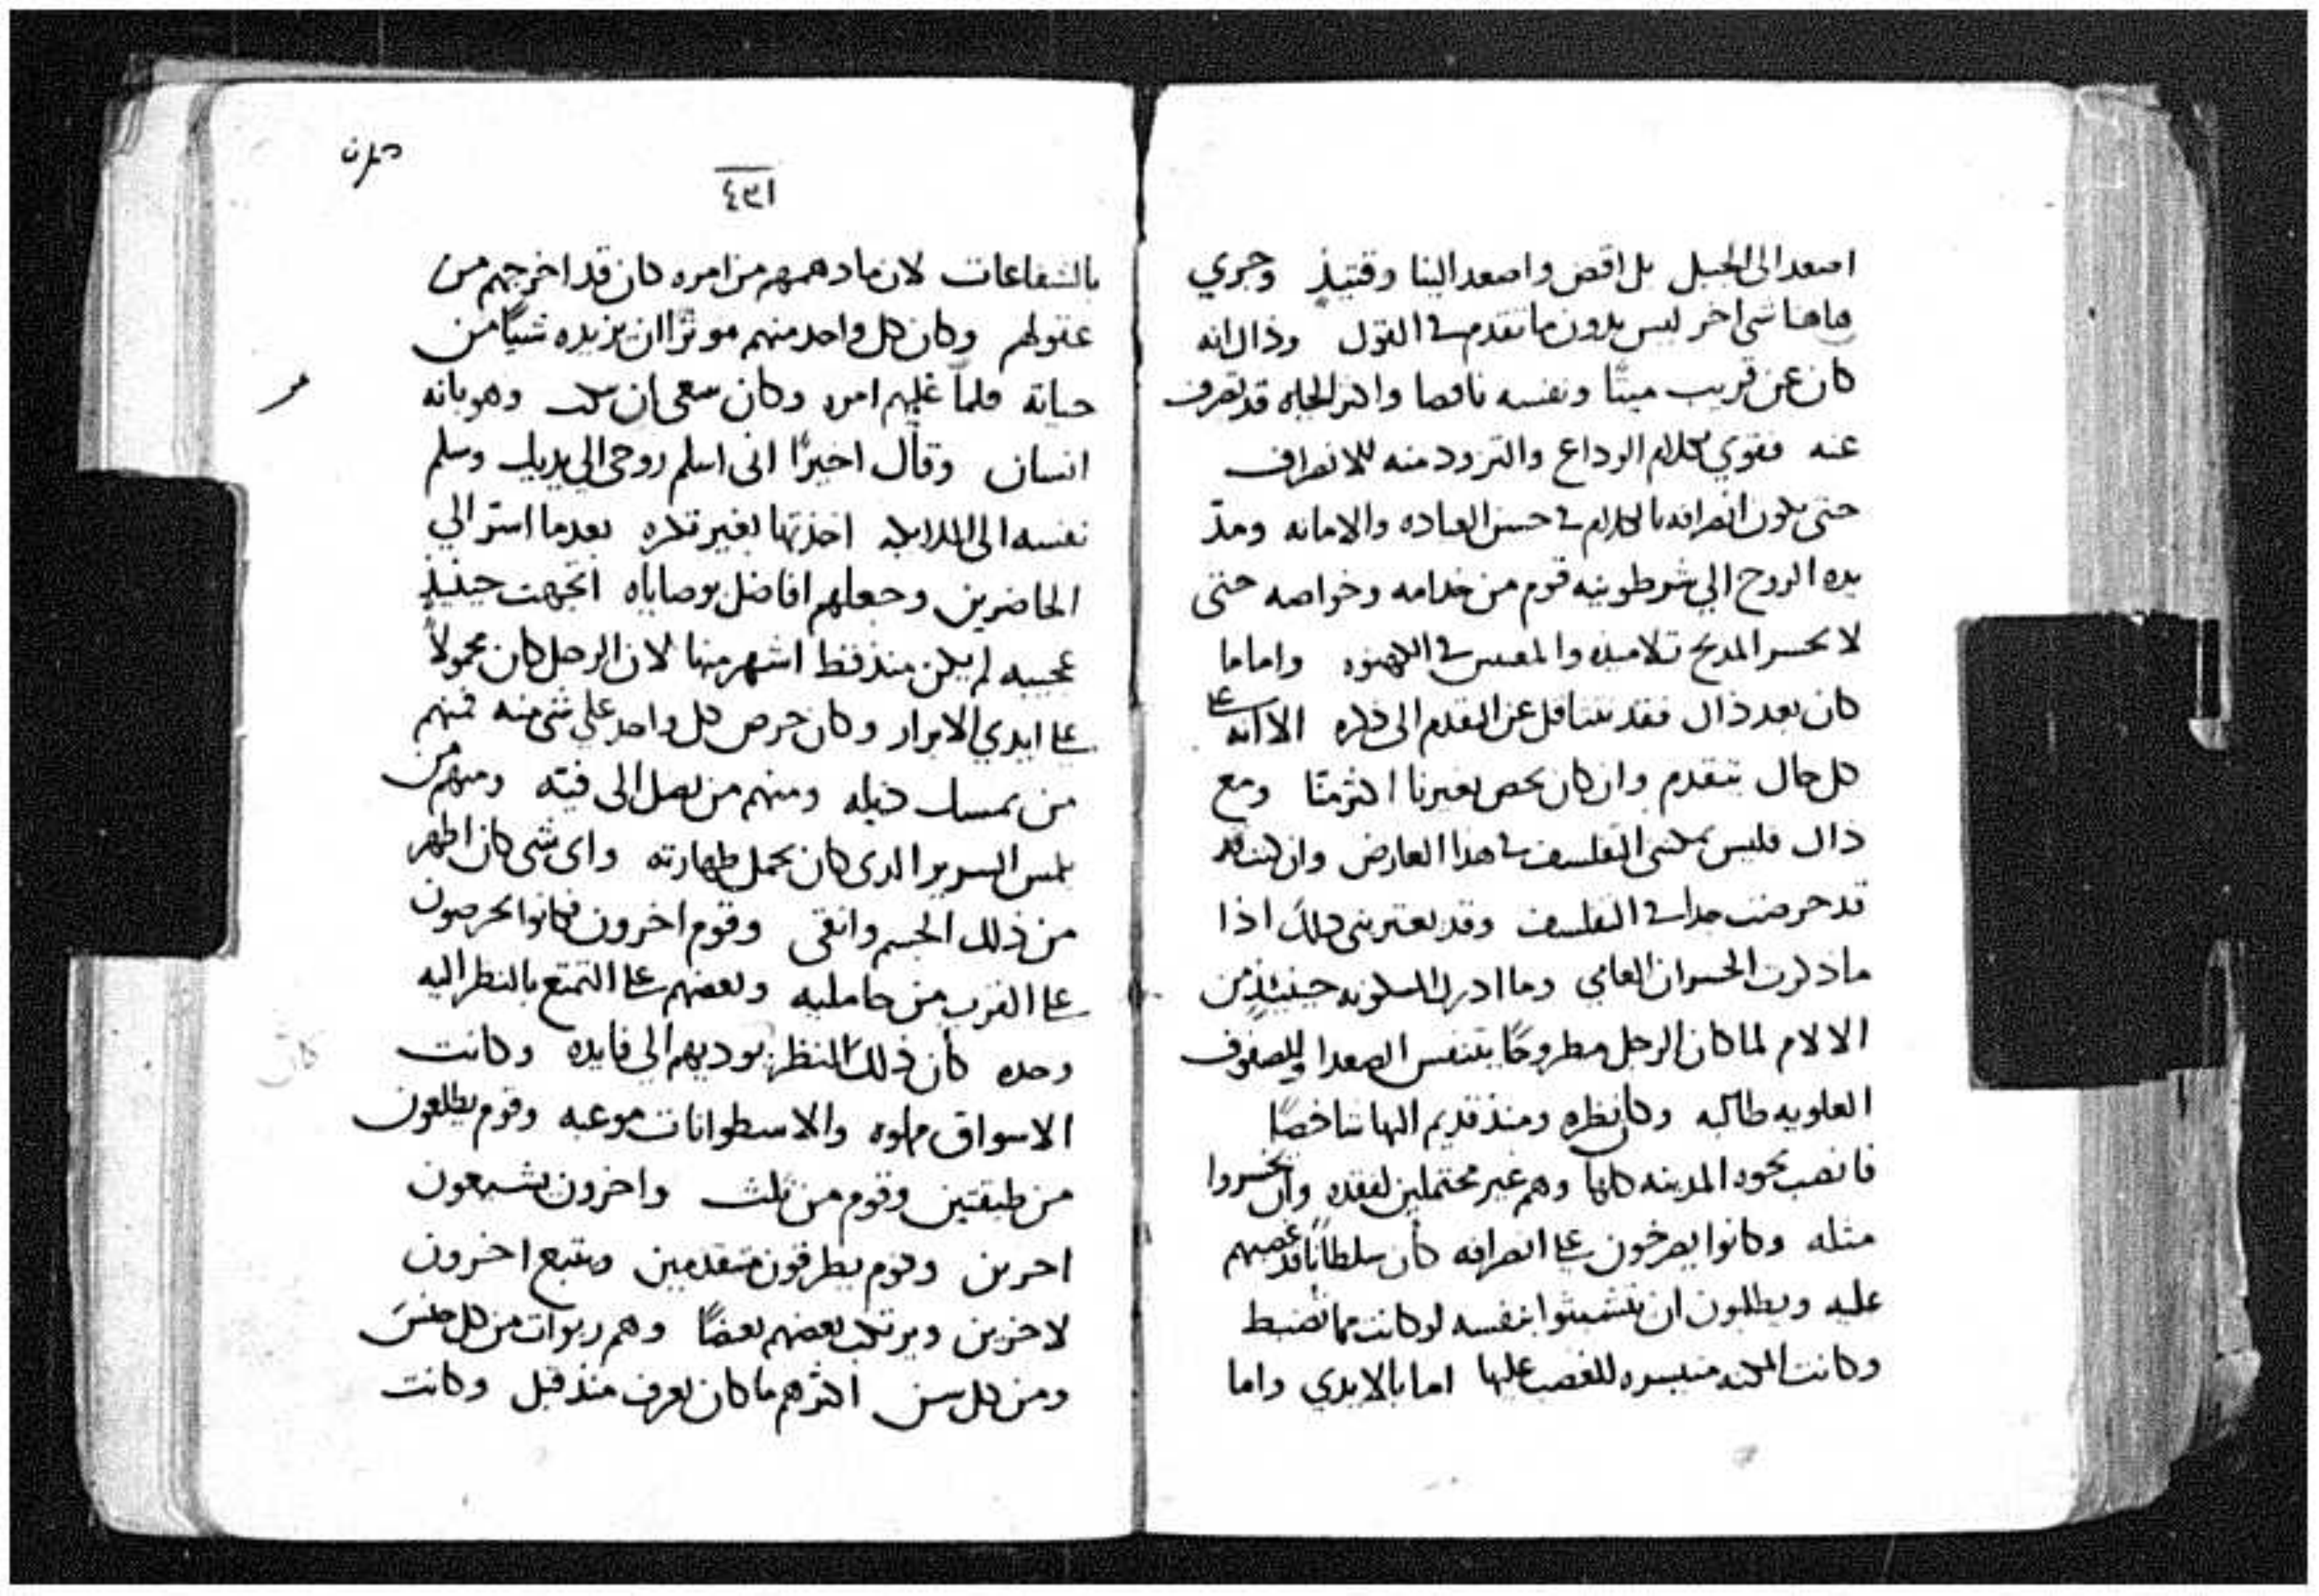 اصعد الى الجبل بل اقض واصعد الينا وقتيذٍ وجري
هاهنا شي اخر ليس بدون ما تقدم في القول وذاك انه
كان عن قريب ميتًا ونفسه ناقصا واكثر الحياه قد تصرف
عنه فقوي بكلام الوداع والتزود منه للانصراف
حتى يكون انصرافه بالكلام في حسن العباده والامانه ومدّ
يده الروح الي شرطونيه قوم من خدامه وخواصه حتى
لا يخسر المديح تلاميذه في الكهنوه واماما
كان بعد ذاك فقد يتثاقل عن التقدم الى ذكره الا انه على
كل حال يتقدم وان كان يخص بغيرنا اكثر منّا ومع
ذاك فليس يمكنني التفلسف في هذا العارض وان كنت
قد حرضت جدا في التفلسف وقد يعتريني ذلك اذا
ما ذكرت الخسران العامي وما ادرك المسكونه حينيذٍ من
الالام لما كان الرجل مطروحًا يتنفس الصعدا والصفوف
العلويه طالبه وكان نظره ومنذ قديم اليها شاخصًا
فانصب نحوه المدينه كلها وهم غير محتملين لفقده وان يخسروا
مثله وكانوا يصرخون على انصرافه كأن سلطانًا قد غصبهم
عليه ويطلبون ان يتشبثوا بنفسه لو كانت مما تضبط
وكانت ميسره للغصب عليها اما بالايدي واما
١٣٤
بالشفاعات لان ما دهمهم من امره كان قد اخرجهم من
عقولهم وكان كل واحد منهم موثرًا ان يزيده شيًا من
حياته فلما غلبهم امره وكان ينبغي ان يثبت وهو بانه
انسان وقال اخيرًا انى اسلم روحي الي يديك وسلم
نفسه الى الملايكه اخذتها بغير تكره بعدما استر الي
الحاضرين وجعلهم افاضل بوصاياه اتجهت حينيذٍ
عجيبه لم يكن منذ قط اشهر منها لان الرجل كان محمولاً
على ايدي الابرار وكان حرص كل واحد على شي منه فمنهم
من يمسك ذيله ومنهم من يصل الى فيئه ومنهم من
يلمس السرير الدى كان يحمل طهارته واى شي كان اطهر
من ذلك الجسم وانقى وقوم اخرون فكانوا يحرصون
على القرب من حامليه وبعضهم على التمتع بالنظر اليه
وحده كأن ذلك النظر يوديهم الي فايده وكانت
الاسواق مملوه والاسطوانات موعبه وقوم يطلعون
من طبقتين وقوم من ثلث واخرون يشيعون
اخرين وقوم يطرقون متقدمين ويتبع اخرون
لاخرين ويرتكب بعضهم بعضًا وهم ربوات من كل جنس
ومن كل سن اكثرهم ما كان يعرف منذ قبل وكانت